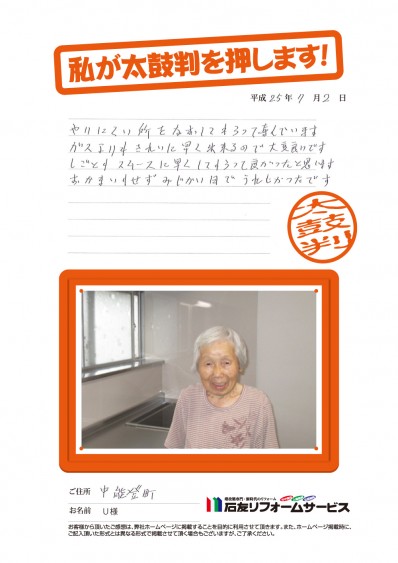 私が太鼓判を押します!
平成 25 年 7 月 2 日
やりにくい所をなおしてもらって喜んでいます
ガスよりもきれいに早く出来るので大変良いです
しごともスムースに早くしてもらって良かったと思います
おかまいもせずみじかい日でうれしかったです
太鼓判
ご住所 中能登町
お名前 U様
石友リフォームサービス
お客様から頂いたご感想は、弊社ホームページに掲載することを目的に利用させて頂きます。また、ホームページ掲載時に、
ご記入頂いた形式とは異なる形式で掲載させて頂く場合もございますが、ご了承ください。